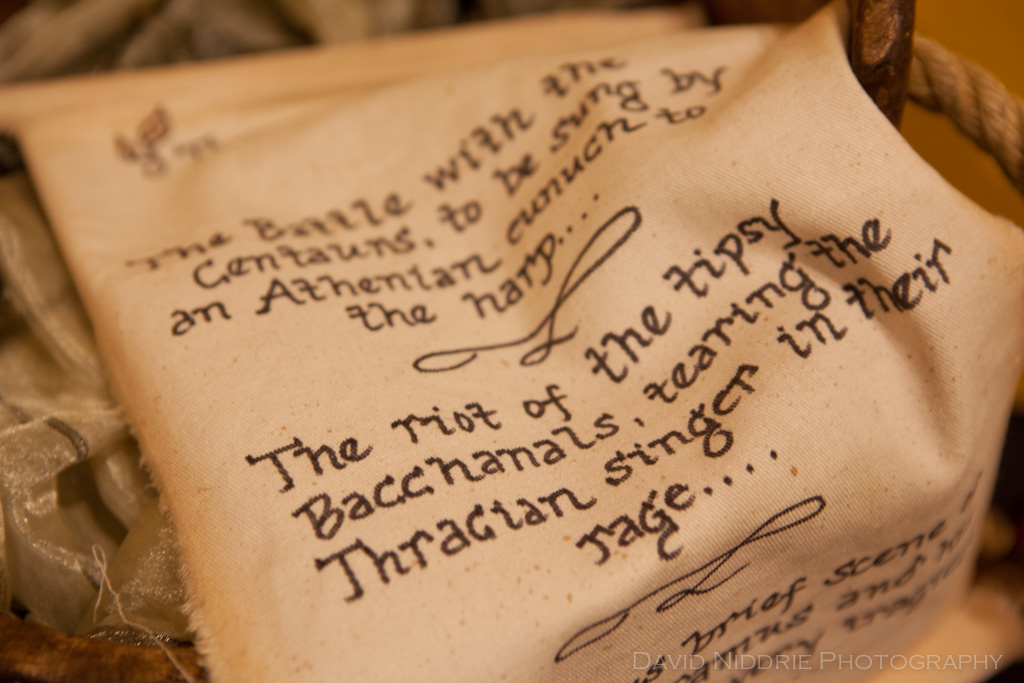 The Battle with the
Centaurs, to be sung by
an Athenian eunuch to
the harp...
The riot of the tipsy
Bacchanals, tearing the
Thracian singer in their
rage....
brief scene
and
tragic
DAVID NIDDRIE PHOTOGRAPHY